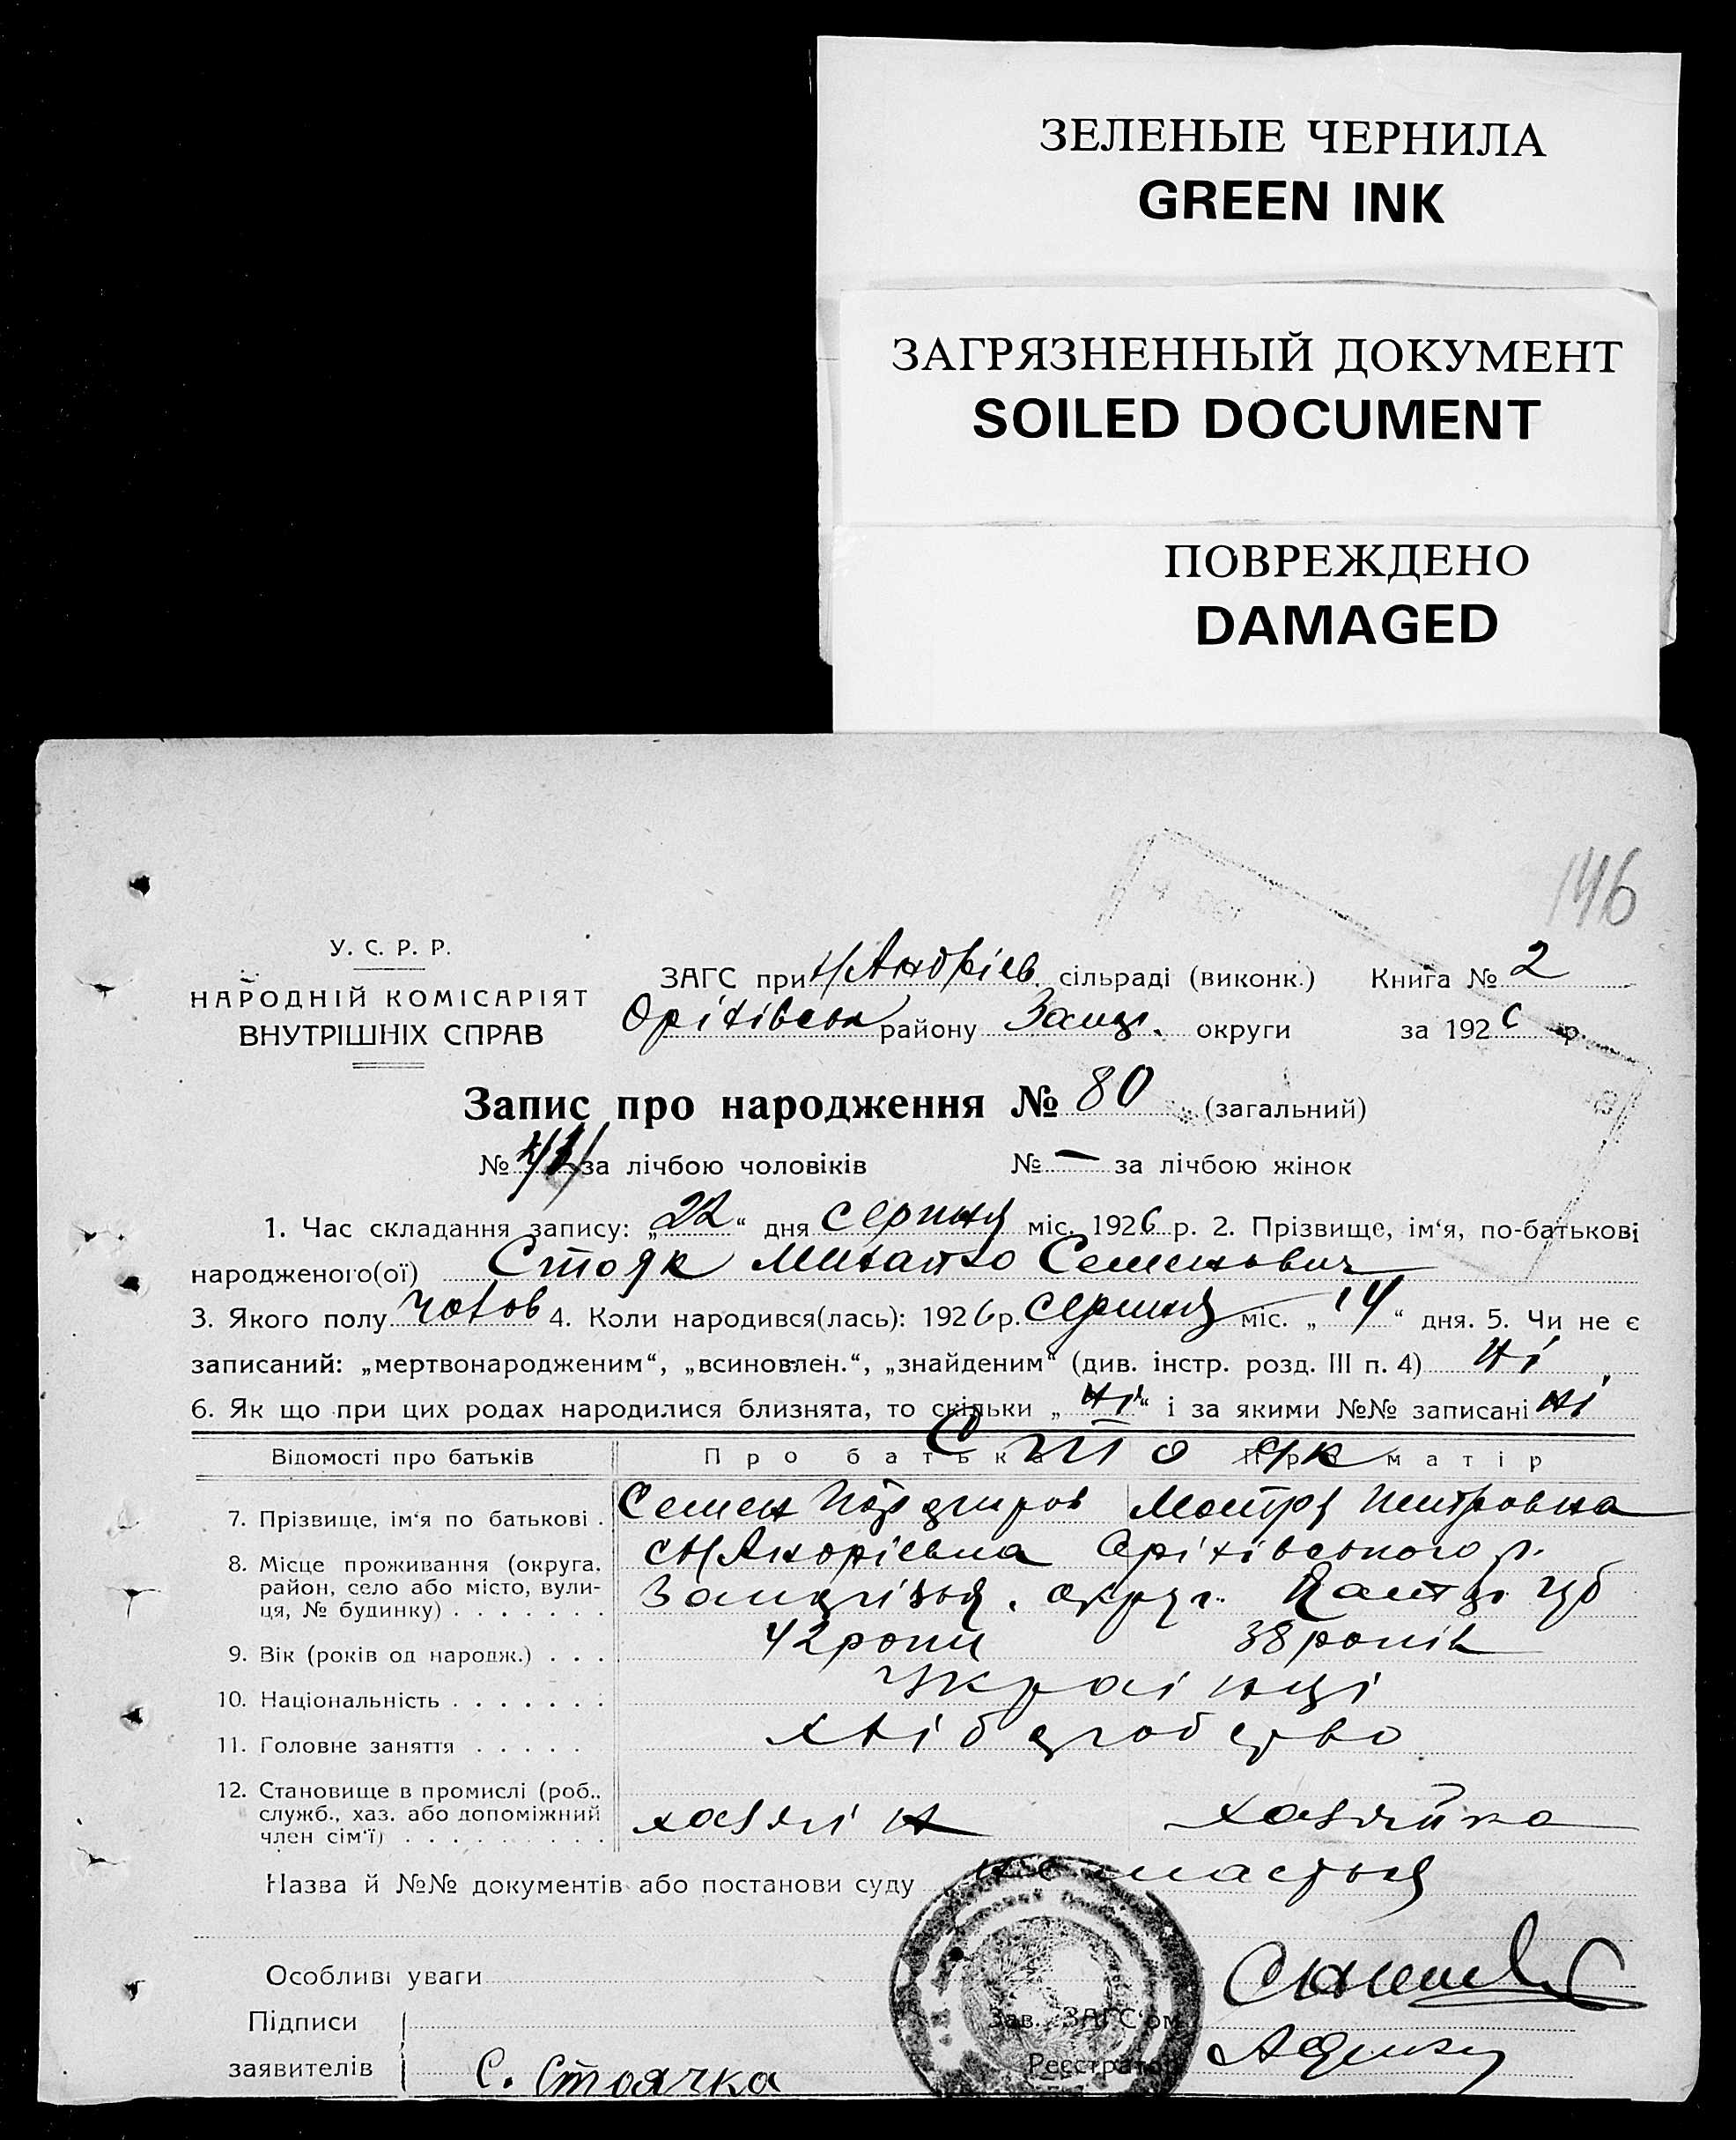 ЗЕЛЕНЫЕ ЧЕРНИЛА
GREEN INK
ЗАГРЯЗНЕННЫЙ ДОКУМЕНТ
SOILED DOCUMENT
ПОВРЕЖДЕНО
DAMAGED
146
У. С. Р. Р.
НАРОДНІЙ КОМІСАРІЯТ
ВНУТРІШНІХ СПРАВ
ЗАГС при Н/Андріев. сільраді (виконк.) Книга № 2
Оріхівськ району Запор. округи за 1926 р.
Запис про народження № 80 (загальний)
№ 41 за лічбою чоловіків № — за лічбою жінок
1. Час складання запису: „22“ дня серпня міс. 1926 р. 2. Прізвище, ім‘я, по-батькові
народженого(ої) Стояк Михайло Семенович
3. Якого полу чолов 4. Коли народився(лась): 1926 р. серпня міс. „14“ дня. 5. Чи не є
записаний: „мертвонародженим“, „всиновлен.“, „знайденим“ (див. інстр. розд. III п. 4) ні
6. Як що при цих родах народилися близнята, то скільки „ні“ і за якими №№ записані ні
Відомості про батьків Про батька Про матір
Стояк
7. Прізвище, ім‘я по батькові . Семен Мотря
8. Місце проживання (округа, район, село або місто, вулиця, № будинку) . . . . . . . с Н/Андріевка Оріхівського р.
Запорізьк. округ.
9. Вік (років од народж.) . . . 42 роки 38 років
10. Національність . . . . . . . Українці
11. Головне заняття . . . . . хліборобство
12. Становище в промислі (роб., служб., хаз. або допоміжний член сім‘ї) . . . . . . . . . хазяїн хазяйка
Назва й №№ документів або постанови суду не мається
Особливі уваги
Підписи
заявителів С. Стоячка
Зав. ЗАГС‘ом
Реєстратор